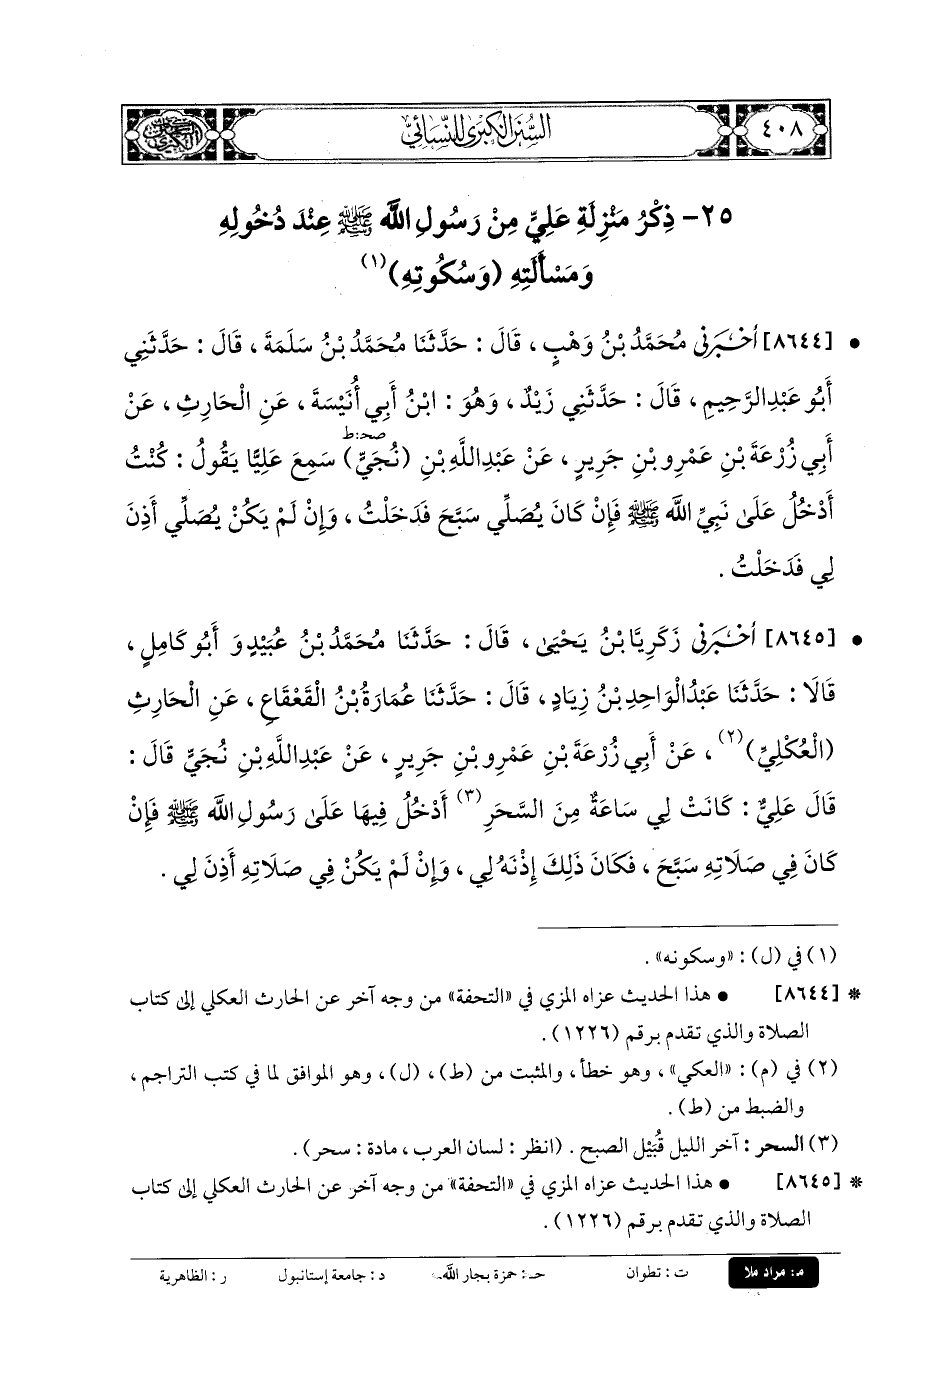 السنن الكبرى للنسائي
٤٠٨
٢٥- ذِكْرُ مَنْزِلَةِ عَلِيٍّ مِنْ رَسُولِ اللَّه ﷺ عِنْدَ دُخُولِهِ
وَمَسْأَلَتِهِ (وَسُكُوتِهِ)(١)
• [٨٦٤٤] أَخْبَرَنِي مُحَمَّدُ بْنُ وَهْبٍ، قَالَ: حَدَّثَنَا مُحَمَّدُ بْنُ سَلَمَةَ، قَالَ: حَدَّثَنِي
أَبُو عَبْدِالرَّحِيمِ، قَالَ: حَدَّثَنِي زَيْدٌ، وَهُوَ: ابْنُ أَبِي أُنَيْسَةَ، عَنِ الْحَارِثِ، عَنْ
صح: ط
أَبِي زُرْعَةَ بْنِ عَمْرِو بْنِ جَرِيرٍ، عَنْ عَبْدِاللَّهِ بْنِ (نُجَيٍّ) سَمِعَ عَلِيًّا يَقُولُ: كُنْتُ
أَدْخُلُ عَلَى نَبِيِّ اللَّه ﷺ فَإِنْ كَانَ يُصَلِّي سَبَّحَ فَدَخَلْتُ، وَإِنْ لَمْ يَكُنْ يُصَلِّي أَذِنَ
لِي فَدَخَلْتُ.
• [٨٦٤٥] أَخْبَرَنِي زَكَرِيَّا بْنُ يَحْيَى، قَالَ: حَدَّثَنَا مُحَمَّدُ بْنُ عُبَيْدٍ وَ أَبُو كَامِلٍ،
قَالَا: حَدَّثَنَا عَبْدُالْوَاحِدِ بْنُ زِيَادٍ، قَالَ: حَدَّثَنَا عُمَارَةُ بْنُ الْقَعْقَاعِ، عَنِ الْحَارِثِ
(الْعُكْلِيِّ)(٢)، عَنْ أَبِي زُرْعَةَ بْنِ عَمْرِو بْنِ جَرِيرٍ، عَنْ عَبْدِاللَّهِ بْنِ نُجَيٍّ قَالَ:
قَالَ عَلِيٌّ: كَانَتْ لِي سَاعَةٌ مِنَ السَّحَرِ(٣) أَدْخُلُ فِيهَا عَلَى رَسُولِ اللَّه ﷺ فَإِنْ
كَانَ فِي صَلَاتِهِ سَبَّحَ، فَكَانَ ذَلِكَ إِذْنَهُ لِي، وَإِنْ لَمْ يَكُنْ فِي صَلَاتِهِ أَذِنَ لِي.
(١) في (ل): «وسكونه».
* [٨٦٤٤] • هذا الحديث عزاه المزي في «التحفة» من وجه آخر عن الحارث العكلي إلى كتاب
الصلاة والذي تقدم برقم (١٢٢٦).
(٢) في (م): «العكي»، وهو خطأ، والمثبت من (ط)، (ل)، وهو الموافق لما في كتب التراجم،
والضبط من (ط).
(٣) السحر: آخر الليل قُبَيْل الصبح. (انظر: لسان العرب، مادة: سحر).
* [٨٦٤٥] • هذا الحديث عزاه المزي في «التحفة» من وجه آخر عن الحارث العكلي إلى كتاب
الصلاة والذي تقدم برقم (١٢٢٦).
م: مراد ملا ت: تطوان حـ: حمزة بجار اللَّه د: جامعة إستانبول ر: الظاهرية